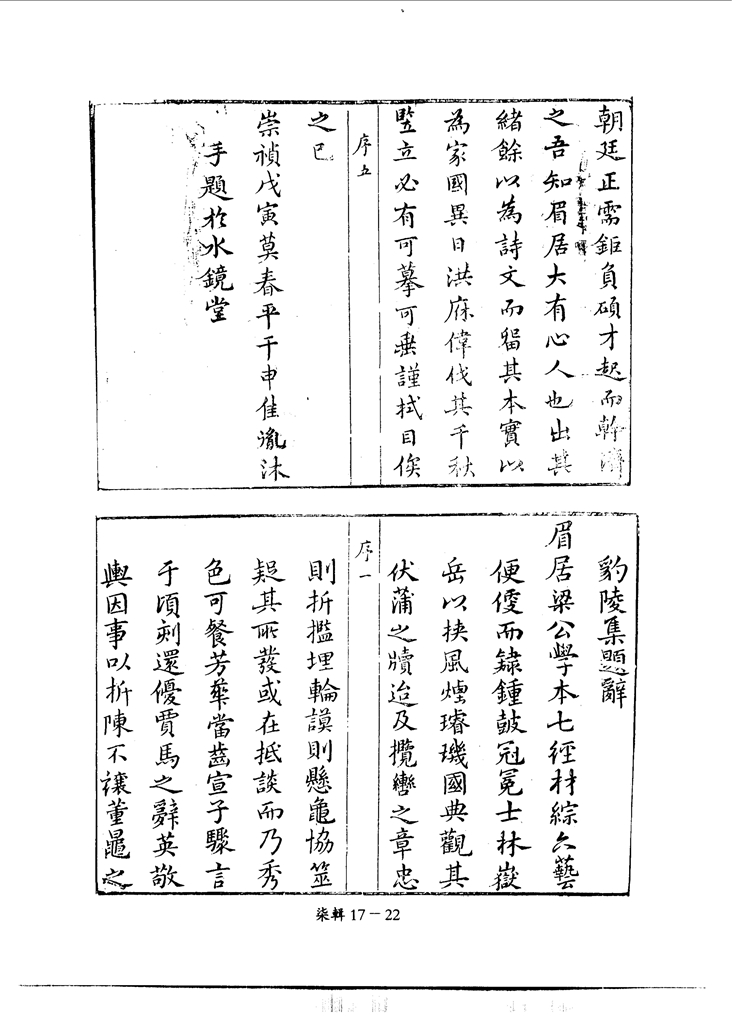 朝廷正需鉅負碩才起而幹濟
之吾知眉居大有心人也出其
緒餘以為詩文而留其本實以
為家國異日洪庥偉伐其千秋
豎立必有可摹可垂謹拭目俟
序五
之已
崇禎戊寅莫春平干申佳胤沐
手題於水鏡堂
豹陵集題辭
眉居梁公學本七經材綜六藝
便僾而鏽鍾皷冠冕士林嶽
岳以挾風煙璿璣國典觀其
伏蒲之牘迨及攬轡之章忠
序一
則折檻埋輪謨則懸龜協筮
疑其所發或在抵談而乃秀
色可餐芳華當齒宣子驟言
于頃刻還優賈馬之辭英敬
輿因事以折陳不讓董鼂之
柒輯 17－22